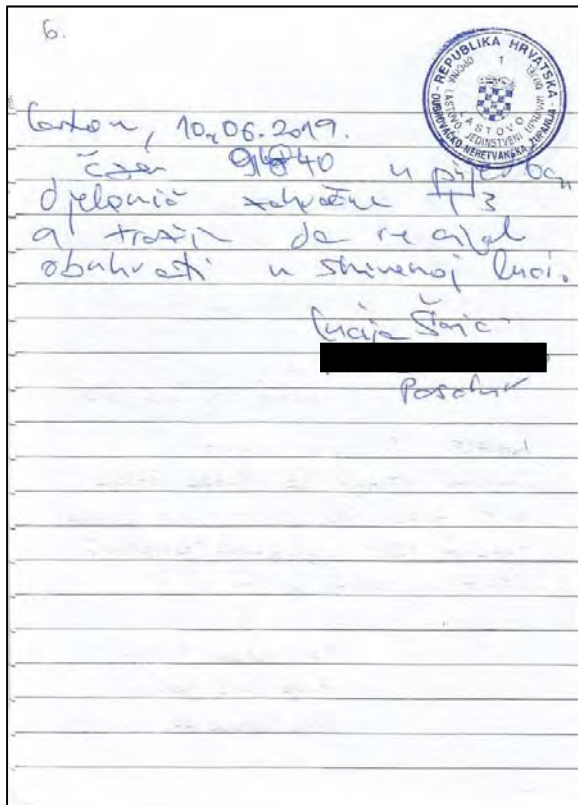 6.
REPUBLIKA HRVATSKA
DUBROVAČKO-NERETVANSKA ŽUPANIJA
OPĆINA LASTOVO JEDINSTVENI UPRAVNI ODJEL
1
LASTOVO
Lastovo, 10.06.2019.
čzem 40 u prijedlogu
djelomič zahvaćene T3
a tražim da se cijela
obuhvati u Skrivenoj luci.
Lucija Šarić